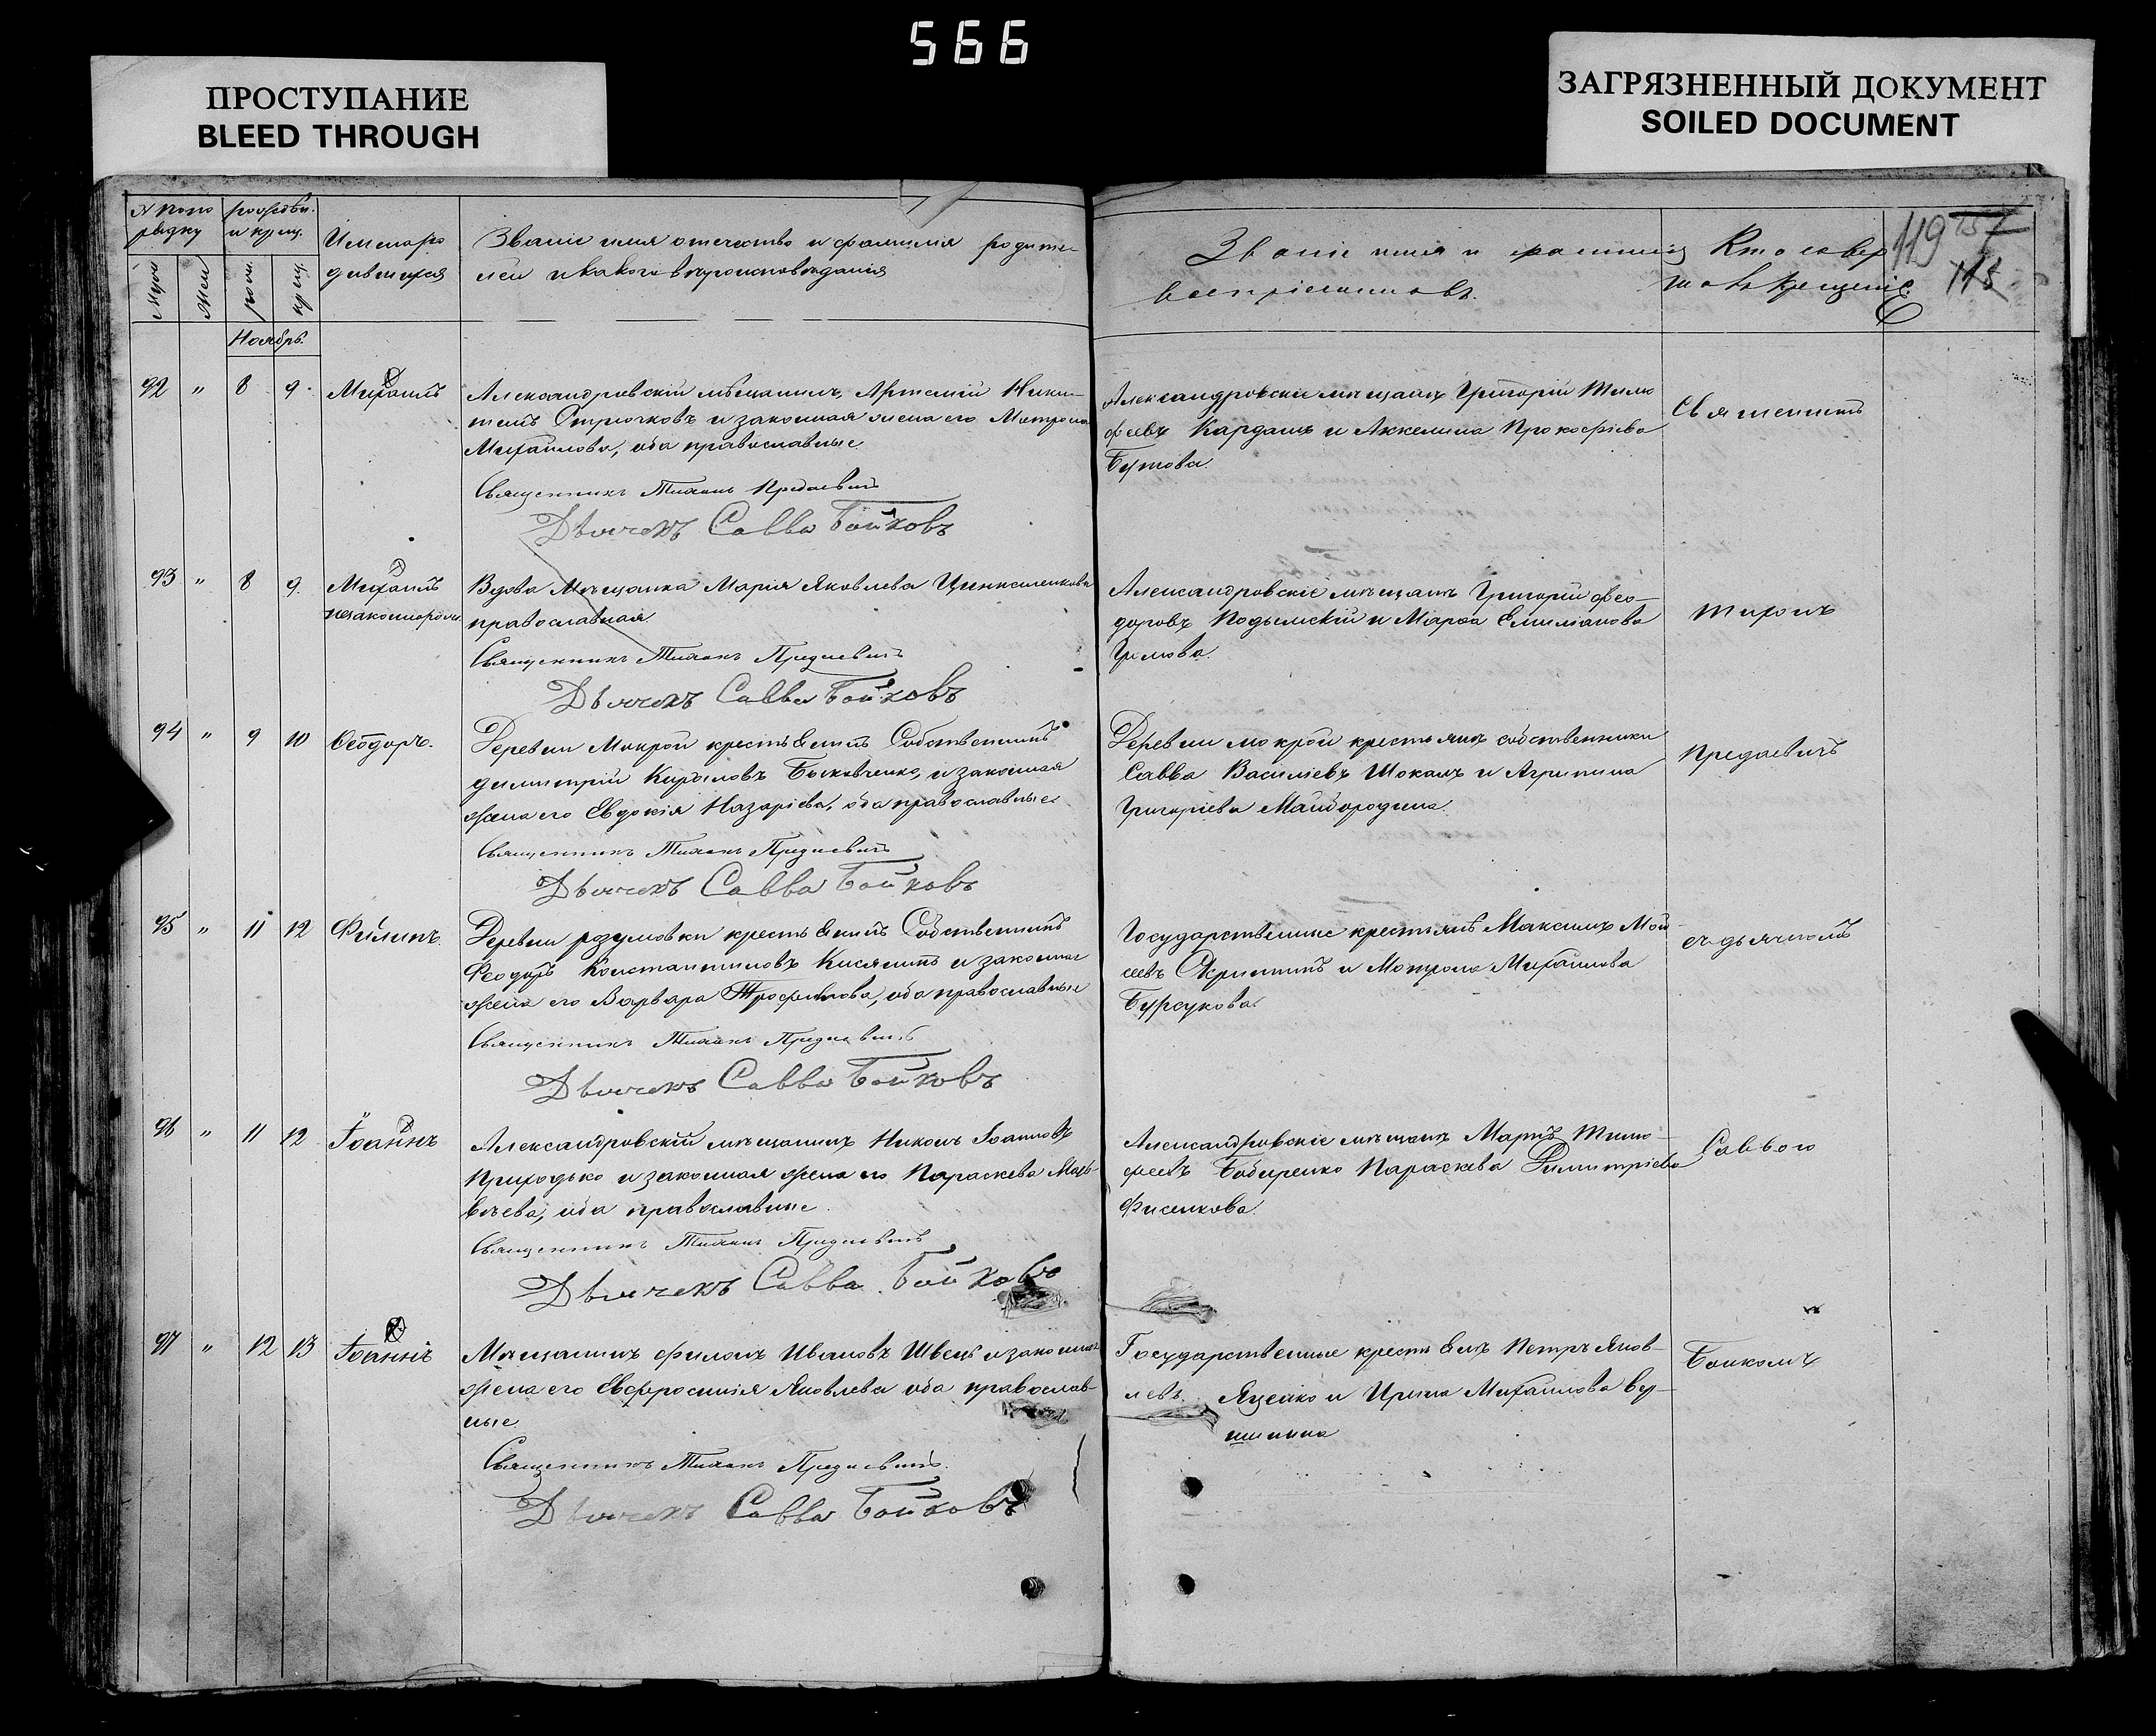 566
ПРОСТУПАНИЕ
BLEED THROUGH
ЗАГРЯЗНЕННЫЙ ДОКУМЕНТ
SOILED DOCUMENT
119 157
118
№ по по
рядку
рожден.
и крещ.
Имена ро
дившихся
Званіе имя отечество и фамилія родите
лей и какого вѣроисповѣданія
Званіе имя и фамилія
воспріемниковъ.
Кто совер
шалъ крещеніе
Муж
Жен
рожд.
крещ.
Ноябрь.
92 " 8 9. Михаилъ
Александровскій мѣщанинъ Артемій Ники-
тинъ Стрючковъ и законная жена его Матрона
Михайлова, оба православные.
Священникъ Тихонъ Предаевичъ
Дьячекъ Савва Бойковъ
Александровскіе мѣщане Григорій Тимо
феевъ Кардашъ и Аккелина Прокофіева
Бутова.
Священникъ
93 " 8 9. Михаилъ
незаконорожд.
Вдова Мѣщанка Марія Яковлева
православная
Священникъ Тихонъ Предаевичъ
Дьячекъ Савва Бойковъ
Александровскіе мѣщане Григорій Фео-
доровъ Подымскій и Марѳа Емиліанова
Тихонъ
94 " 9 10 Ѳеодоръ.
Деревни Мокрой крестьянинъ Собственникъ
Димитрій Кириловъ и законная
жена его Евдокія Назаріева, оба православные
Священникъ Тихонъ Предаевичъ
Дьячекъ Савва Бойковъ
Деревни мокрой крестьяне собственники
Савва Василіевъ Шоканъ и Агрипина
Григоріева Майбородина.
Предаевичъ
95 " 11 12 Филипъ.
Деревни розумовки крестьянинъ Собственникъ
Феодоръ Константиновъ и законная
жена его Варвара Трофимова, оба православные
Священникъ Тихонъ Предаевичъ
Дьячекъ Савва Бойковъ
Государственные крестьяне Максимъ Мои
сеевъ и Матрона Михайлова
Бурсукова.
съ дьячкомъ
96 " 11 12 Іоаннъ
Александровскій мѣщанинъ Никонъ Іоанновъ
Приходько и законная жена его Параскева Мат-
вѣева, оба православные.
Священникъ Тихонъ Предаевичъ
Дьячекъ Савва Бойковъ
Александровскіе мѣщане Маркъ Тимо-
феевъ Бабиренко Параскева Димитріева
Фисенкова.
Саввою
97 " 12 13 Іоаннъ
Мѣщанинъ Филонъ Ивановъ Швець и законная
жена его Евфросинія Яковлева оба православ-
ные
Священникъ Тихонъ Предаевичъ.
Дьячекъ Савва Бойковъ
Государственные крестьяне Петръ Яков-
левъ Яценко и Ирина Михайлова
Бойкомъ